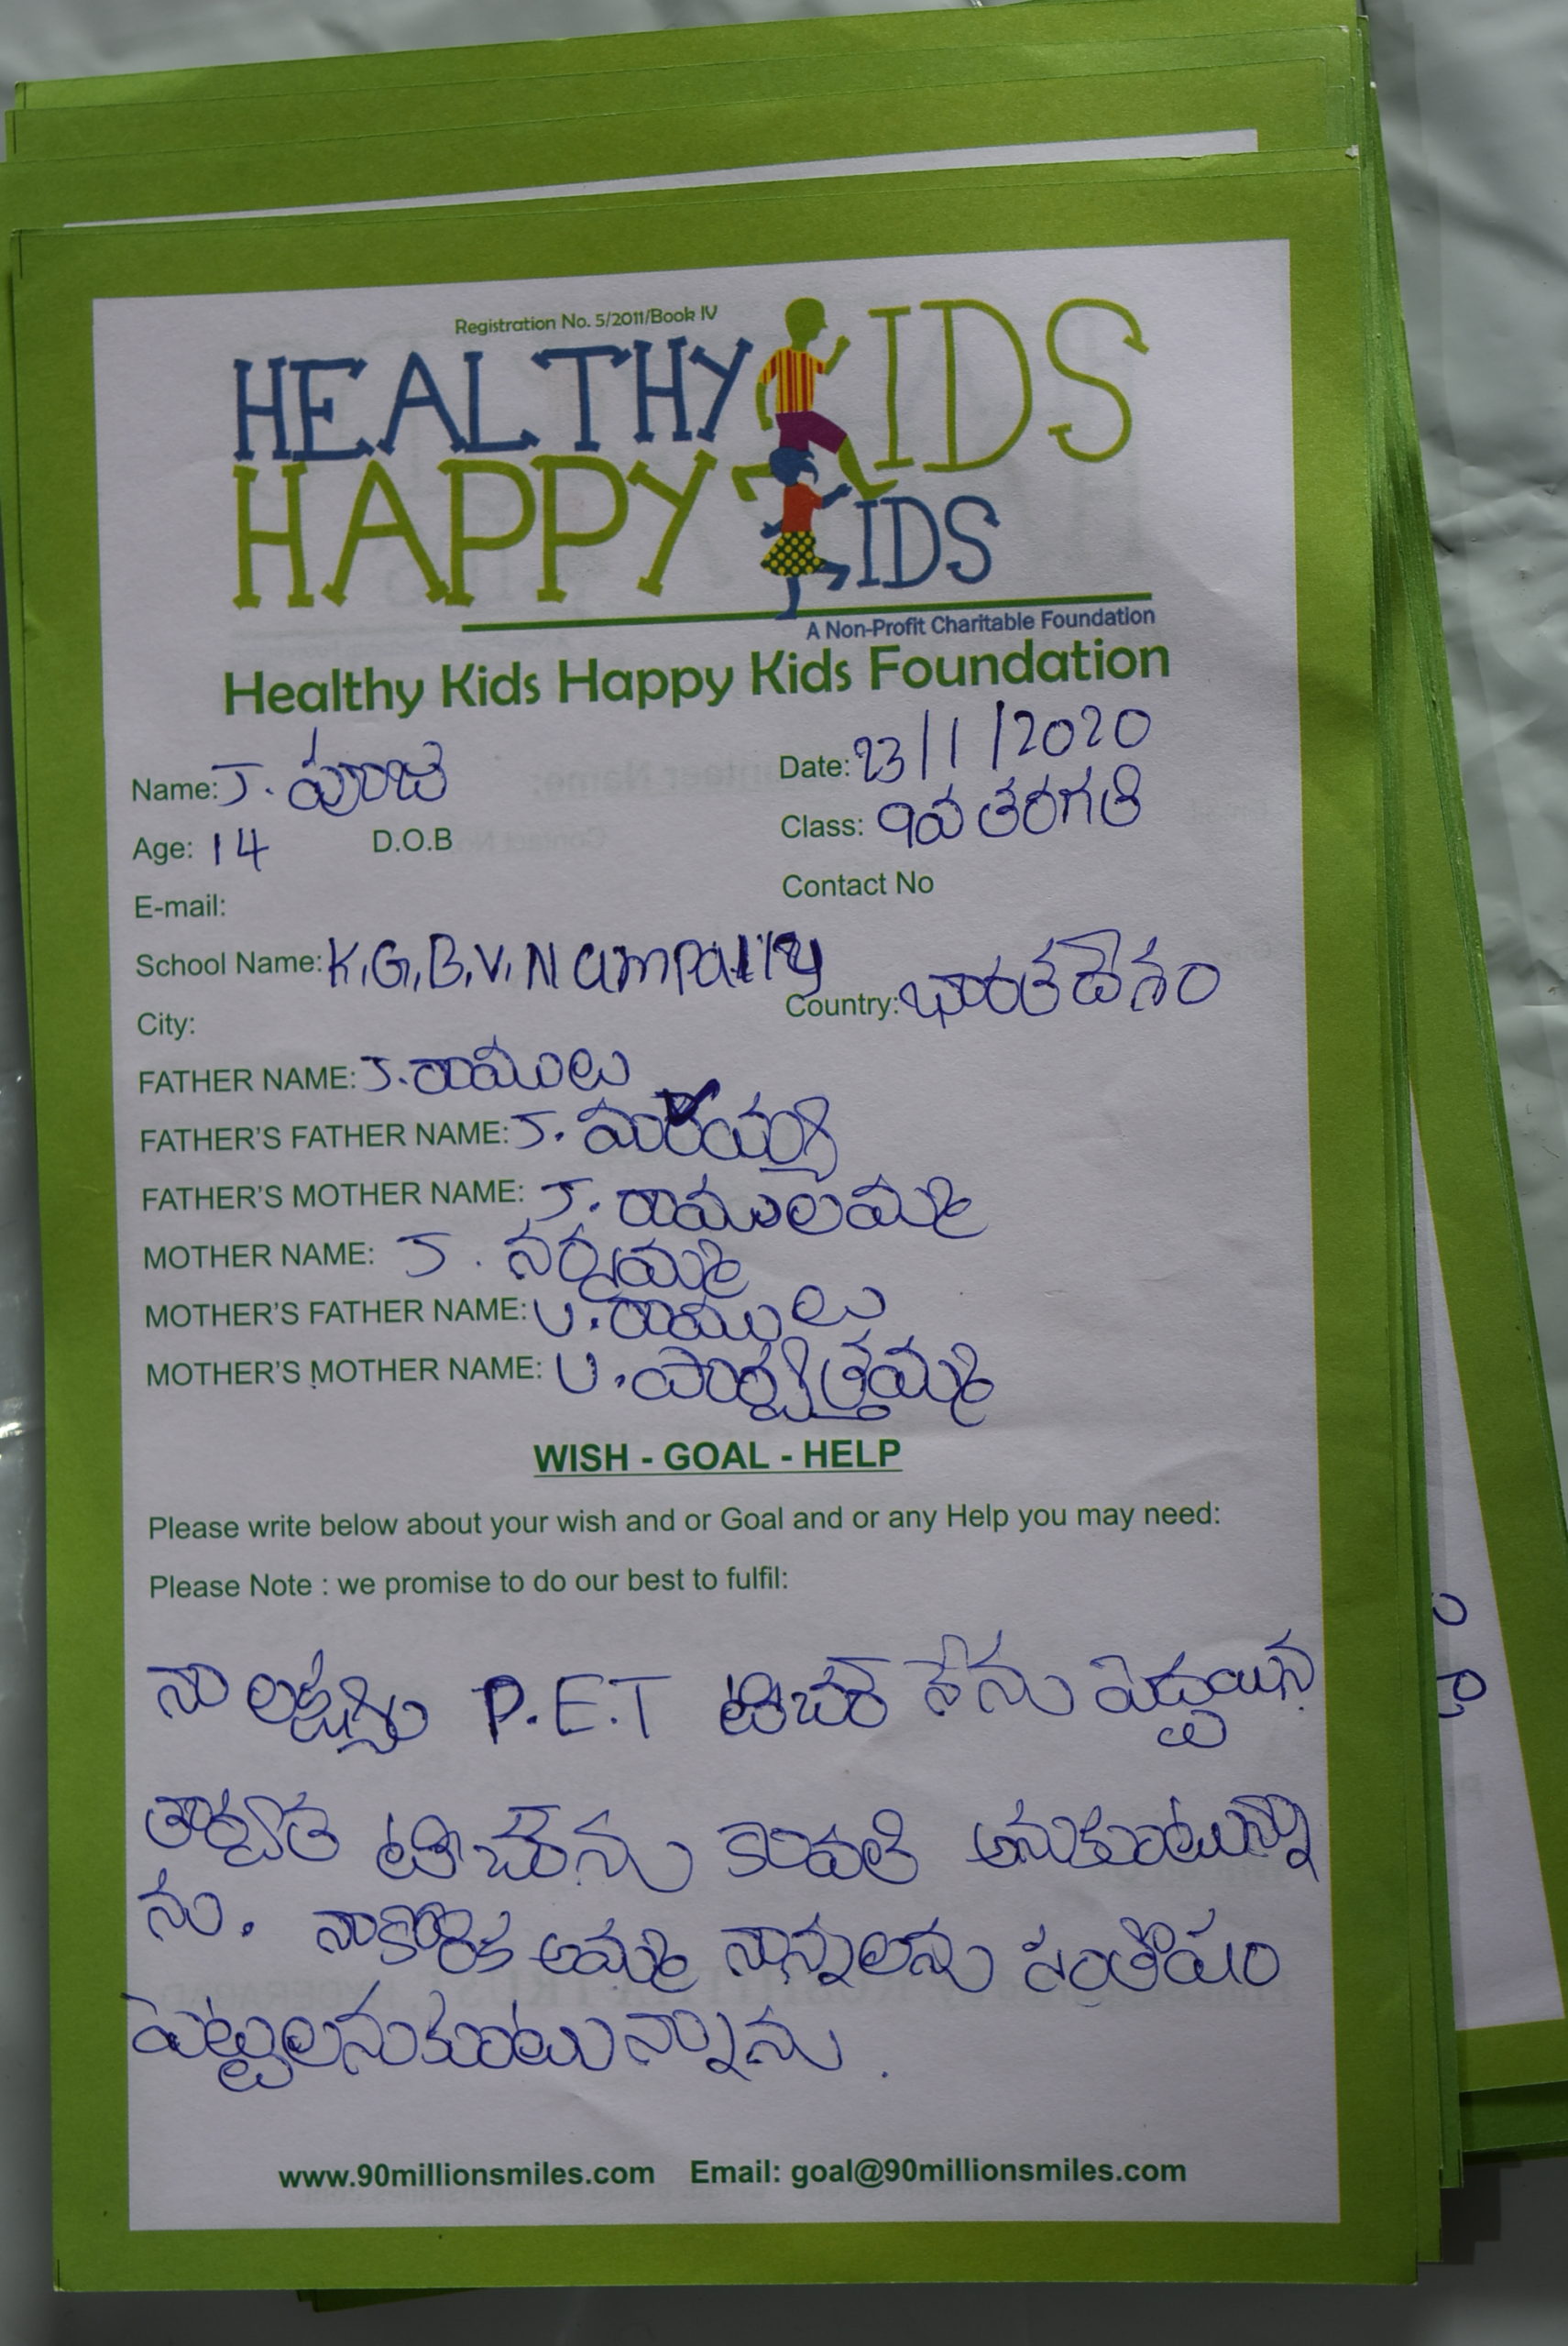 Registration No. 5/2011/Book IV
HEALTHY KIDS
HAPPY KIDS
A Non-Profit Charitable Foundation
Healthy Kids Happy Kids Foundation
Name: J. పూజ Date: 23/1/2020
Age: 14 D.O.B Class: 9వ తరగతి
E-mail: Contact No
School Name: K.G.B.V. Nampally
City: Country: భారతదేశం
FATHER NAME: J. రాములు
FATHER'S FATHER NAME: J.
FATHER'S MOTHER NAME: J. రాములమ్మ
MOTHER NAME: J. నర్సమ్మ
MOTHER'S FATHER NAME: U. రాములు
MOTHER'S MOTHER NAME: U.
WISH - GOAL - HELP
Please write below about your wish and or Goal and or any Help you may need:
Please Note : we promise to do our best to fulfil:
నా P.E.T టిచర్ నేను పెద్దయిన
తార్వత టిచర్ను కావలి అనుకుంటున్నా
ను. నాకోరిక అమ్మ నాన్నలను సంతోషం
పెట్టలనుకుంటున్నాను.
www.90millionsmiles.com Email: goal@90millionsmiles.com